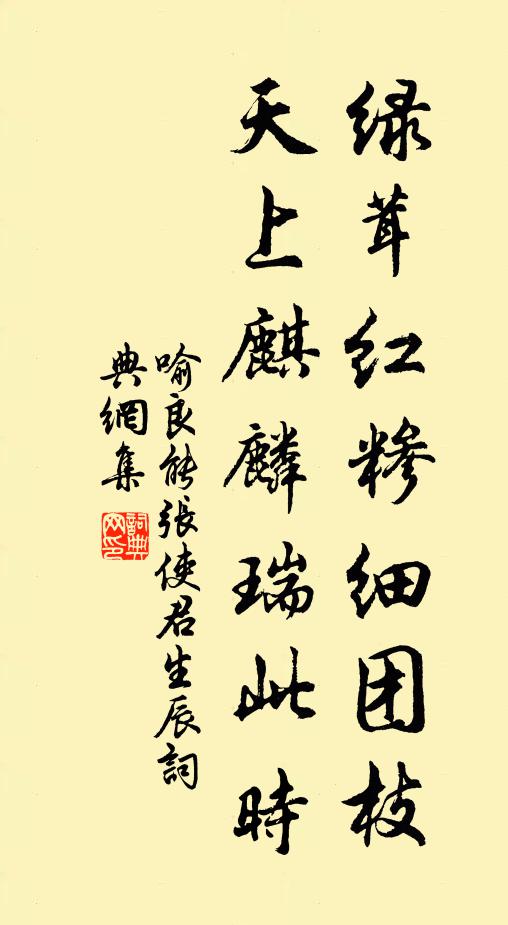 绿茸红糁细团枝
天上麒麟瑞此時
喻良能張使君生辰詞
典網集
詞典网印